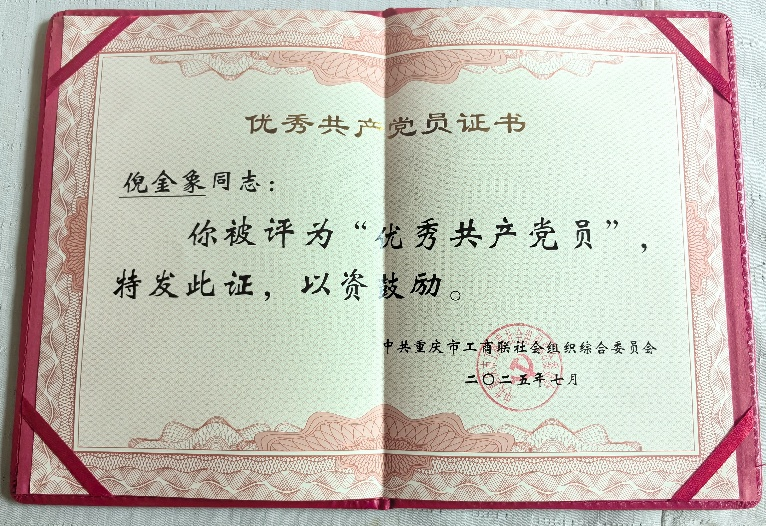 优秀共产党员证书
倪金象同志：
你被评为“优秀共产党员”，
特发此证，以资鼓励。
中共重庆市工商联社会组织综合委员会
二〇二五年七月